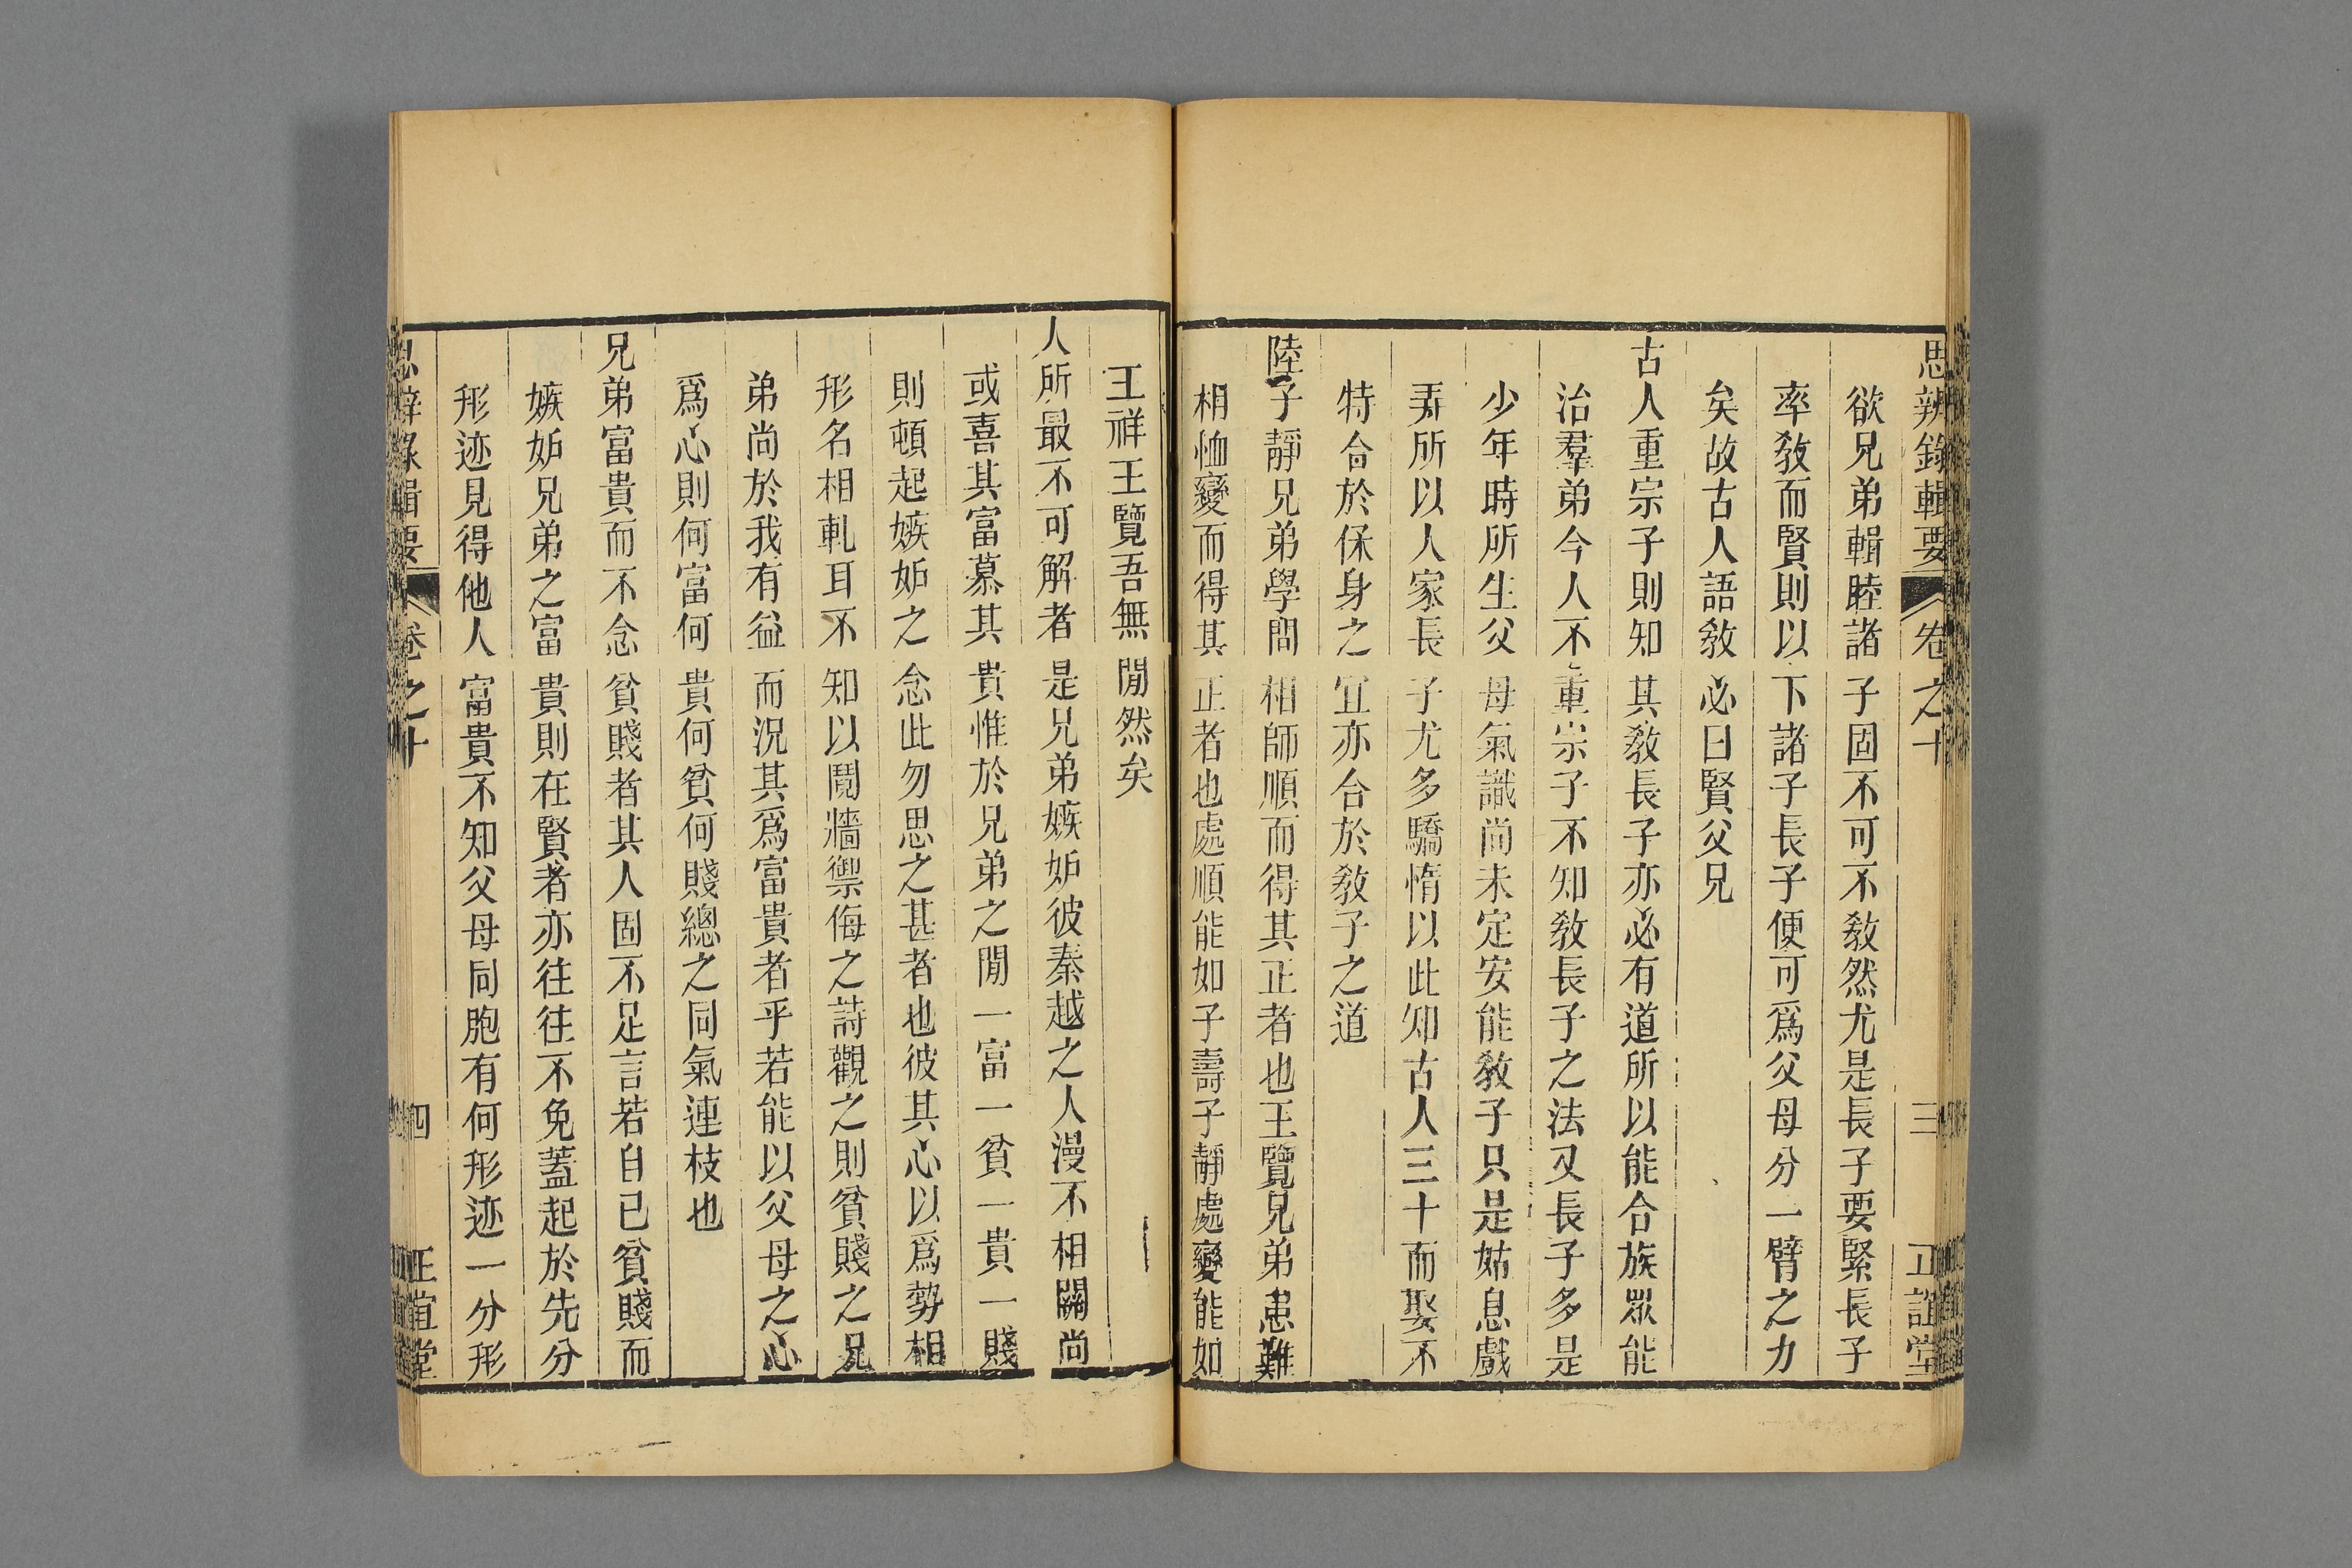 思辨錄輯要 卷之十 三 正誼堂
欲兄弟輯睦諸子固不可不敎然尤是長子要緊長子
率敎而賢則以下諸子長子便可爲父母分一臂之力
矣故古人語敎必曰賢父兄
古人重宗子則知其敎長子亦必有道所以能合族眾能
治羣弟今人不重宗子不知敎長子之法又長子多是
少年時所生父母氣識尚未定安能敎子只是姑息戲
弄所以人家長子尤多驕惰以此知古人三十而娶不
特合於保身之宜亦合於敎子之道
陸子靜兄弟學問相師順而得其正者也王覽兄弟患難
相恤變而得其正者也處順能如子壽子靜處變能如
王祥王覽吾無閒然矣
人所最不可解者是兄弟嫉妒彼秦越之人漫不相關尚
或喜其富慕其貴惟於兄弟之閒一富一貧一貴一賤
則頓起嫉妒之念此勿思之甚者也彼其心以爲勢相
形名相軋耳不知以鬩牆禦侮之詩觀之則貧賤之兄
弟尚於我有益而況其爲富貴者乎若能以父母之心
爲心則何富何貴何貧何賤總之同氣連枝也
兄弟富貴而不念貧賤者其人固不足言若自已貧賤而
嫉妒兄弟之富貴則在賢者亦往往不免蓋起於先分
形迹見得他人富貴不知父母同胞有何形迹一分形
思辨錄輯要 卷之十 四 正誼堂